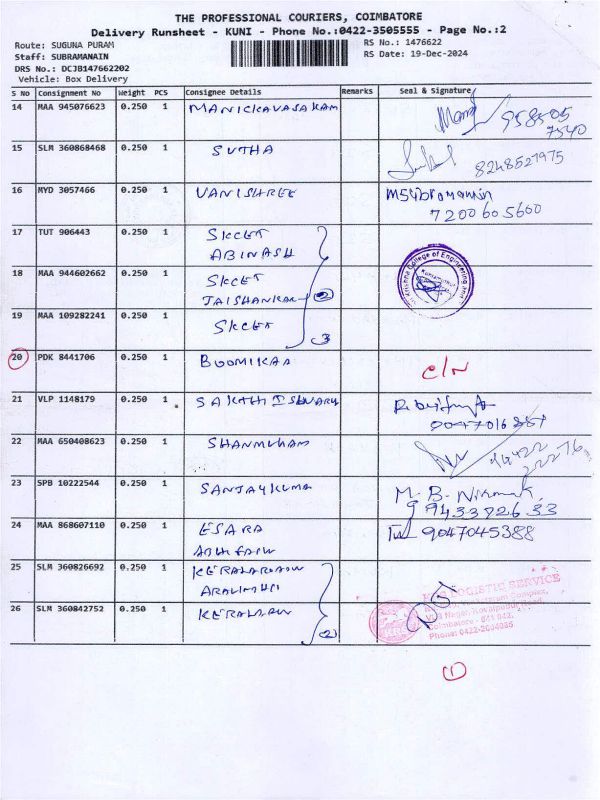 THE PROFESSIONAL COURIERS, COIMBATORE
Delivery Runsheet - KUNI - Phone No.:0422-3505555 - Page No.:2
Route: SUGUNA PURAM
RS No.: 1476622
Staff: SUBRAMANAIN
RS Date: 19-Dec-2024
DRS No.: DCJB147662202
Vehicle: Box Delivery
S No Consignment No Weight PCS Consignee Details Remarks Seal & Signature
14 MAA 945076623 0.250 1 MANICKAVASAKAM 958505
7540
15 SLM 360868468 0.250 1 SUTHA 8248521975
16 MYD 3057466 0.250 1 VANISHREE MSubramanian
7200605600
17 TUT 906443 0.250 1 SKCET
ABINASH
18 MAA 944602662 0.250 1 SKCET
JAISHANKAR 2
19 MAA 109282241 0.250 1 SKCET
3
20 PDK 8441706 0.250 1 BOOMIKAA C/N
21 VLP 1148179 0.250 1 SAKTHI ISWARI
22 MAA 650408623 0.250 1 SHANMUHAM
23 SPB 10222544 0.250 1 SANJAYKUMA M.B.
9433826 33
24 MAA 868607110 0.250 1 ESARA 9047045388
25 SLM 360826692 0.250 1
26 SLM 360842752 0.250 1
(2)
LOGISTIC SERVICE
Coimbatore - 641 042.
1